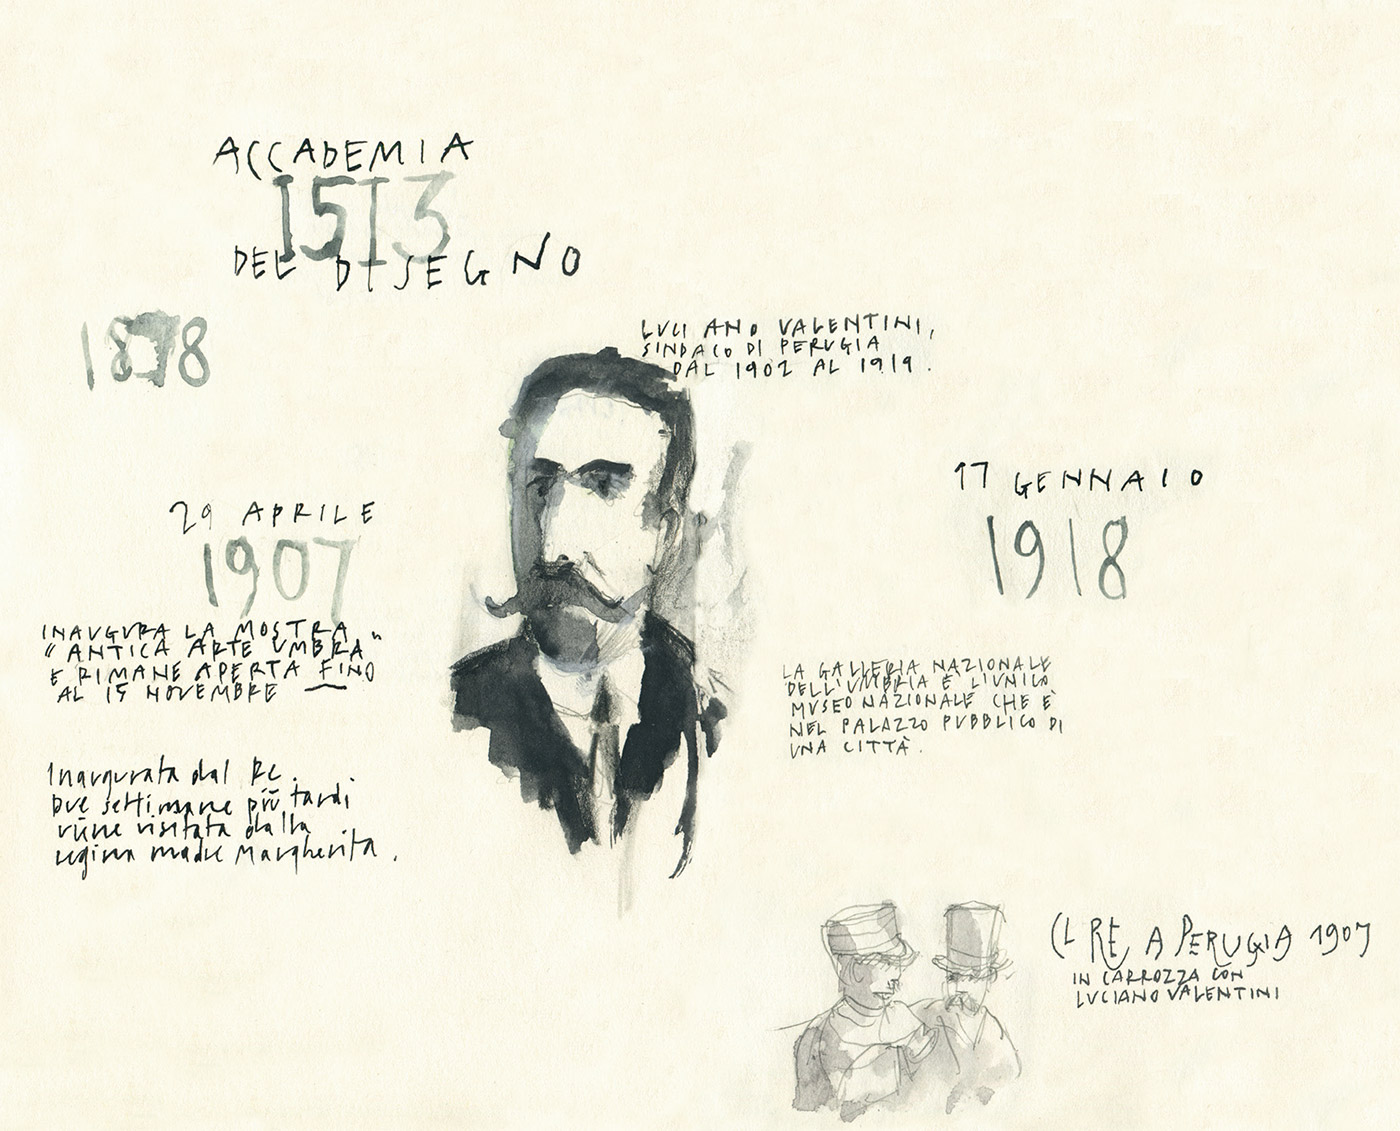 ACCADEMIA
1513
DEL DISEGNO
1878
LUCIANO VALENTINI,
SINDACO DI PERUGIA
DAL 1902 AL 1919.
17 GENNAIO
1918
29 APRILE
1907
INAUGURA LA MOSTRA
"ANTICA ARTE UMBRA"
E RIMANE APERTA FINO
AL 15 NOVEMBRE
LA GALLERIA NAZIONALE
DELL'UMBRIA È L'UNICO
MUSEO NAZIONALE CHE È
NEL PALAZZO PUBBLICO DI
UNA CITTÀ.
Inaugurata dal RE.
Due settimane più tardi
viene visitata dalla
regina madre Margherita.
IL RE A PERUGIA 1907
IN CARROZZA CON
LUCIANO VALENTINI